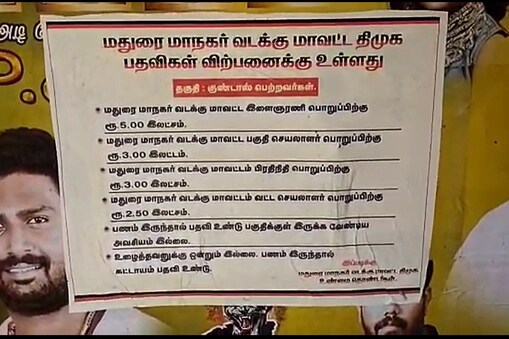 மதுரை மாநகர் வடக்கு மாவட்ட திமுக
பதவிகள் விற்பனைக்கு உள்ளது
தகுதி : குண்டாஸ் பெற்றவர்கள்.
• மதுரை மாநகர் வடக்கு மாவட்ட இளைஞரணி பொறுப்பிற்கு
ரூ.5.00 இலட்சம்.
• மதுரை மாநகர் வடக்கு மாவட்ட பகுதி செயலாளர் பொறுப்பிற்கு
ரூ.3.00 இலட்டம்.
• மதுரை மாநகர் வடக்கு மாவட்டம் பிரதிநிதி பொறுப்பிற்கு
ரூ.3.00 இலட்சம்.
• மதுரை மாநகர் வடக்கு மாவட்டம் வட்ட செயலாளர் பொறுப்பிற்கு
ரூ.2.50 இலட்சம்.
• பணம் இருந்தால் பதவி உண்டு பகுதிக்குள் இருக்க வேண்டிய
அவசியம் இல்லை.
• உழைத்தவனுக்கு ஒன்றும் இல்லை. பணம் இருந்தால்
கட்டாயம் பதவி உண்டு.
இப்படிக்கு
மதுரை மாநகர் வடக்கு மாவட்ட திமுக
உண்மை தொண்டர்கள்.